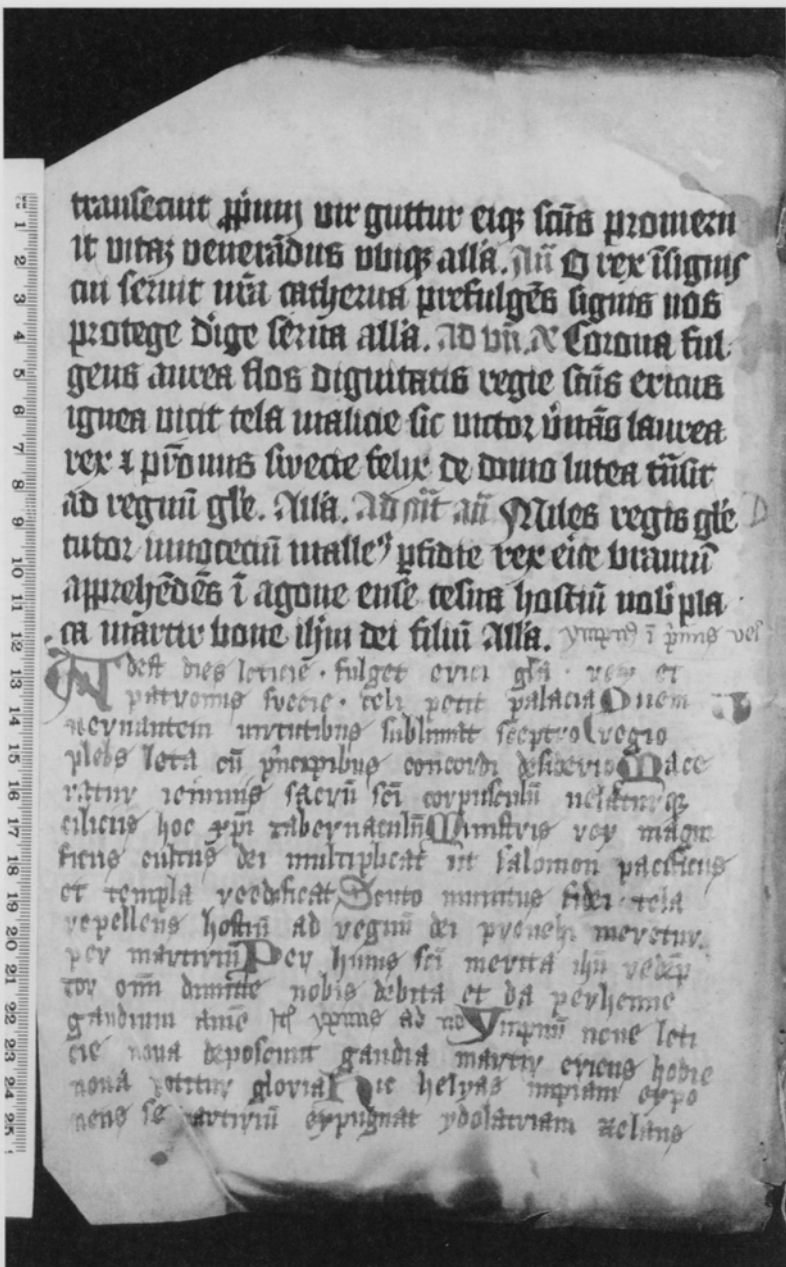 transeunt ppriuꝫ vir guttur eiqꝫ sc̄us promeru
it vitaꝫ venerādus vbiqꝫ all'a. Añ O rex īsignis
cui seruit vn̄a catherua prefulgēs signis nos
protege dige serua all'a. Ad vīi. Corona ful
gens aurea flos dignitatis regie sc̄us ericus
ignea vicit tela malicie sic victor laurea
rex ⁊ pr̄onus swecie felix de domo lutea trāsit
ad regnū gl'e. All'a. Ad añ Miles regis gl'e
tutor innocenciū malle⁹ ꝑfidie rex eice
apprehēdēs ī agone ense cesus hostiū nobis pla
ca martir bone ih̄m dei filiū All'a. ympn⁹ ī pimis vesp
Adest dies leticie · fulget erici gl'a · rex et
patronus svecie · celi petit palacia Quem
vernantem virtutibus sublimat sceptro regio
plebs leta cū pncipibus concordi desiderio Mace
ratur ieiuniis sacrū sc̄i corpusculū velaturqꝫ
ciliciis hoc xp̄i tabernaculū Ministris rex magni
ficus cultus dei multiplicat ut salomon pacificus
et templa reedificat Scuto munitus fidei · tela
repellens hostiū ad regnū dei prouehi meretur
per martiriū Per huius sc̄i merita ih̄u redēp
tor om̄i dimitte nobis debita et da perhenne
gaudium amē ympnus ad no Ympnū noue leti
cie noua deposcunt gaudia martir ericus hodie
noua potitur gloria Hic helyas impiam expo
nens se martiriū expugnat ydolatriam zelans